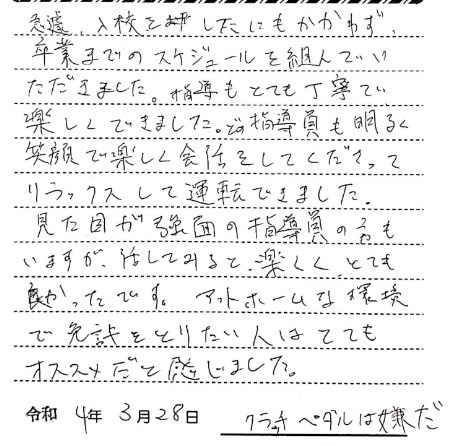 急遽、入校を早したにもかかわず、
卒業までのスケジュールを組んでい
ただきました。指導もとても丁寧で
楽しくできました。どの指導員も明るく
笑顔で楽しく会話をしてくださって
リラックスして運転できました。
見た目が強面の指導員の方も
いますが、話してみると、楽しく、とても
良かったです。アットホームな環境
で免許をとりたい人はとても
オススメだと感じました。
令和 4年 3月28日
クラッチペダルは嫌だ